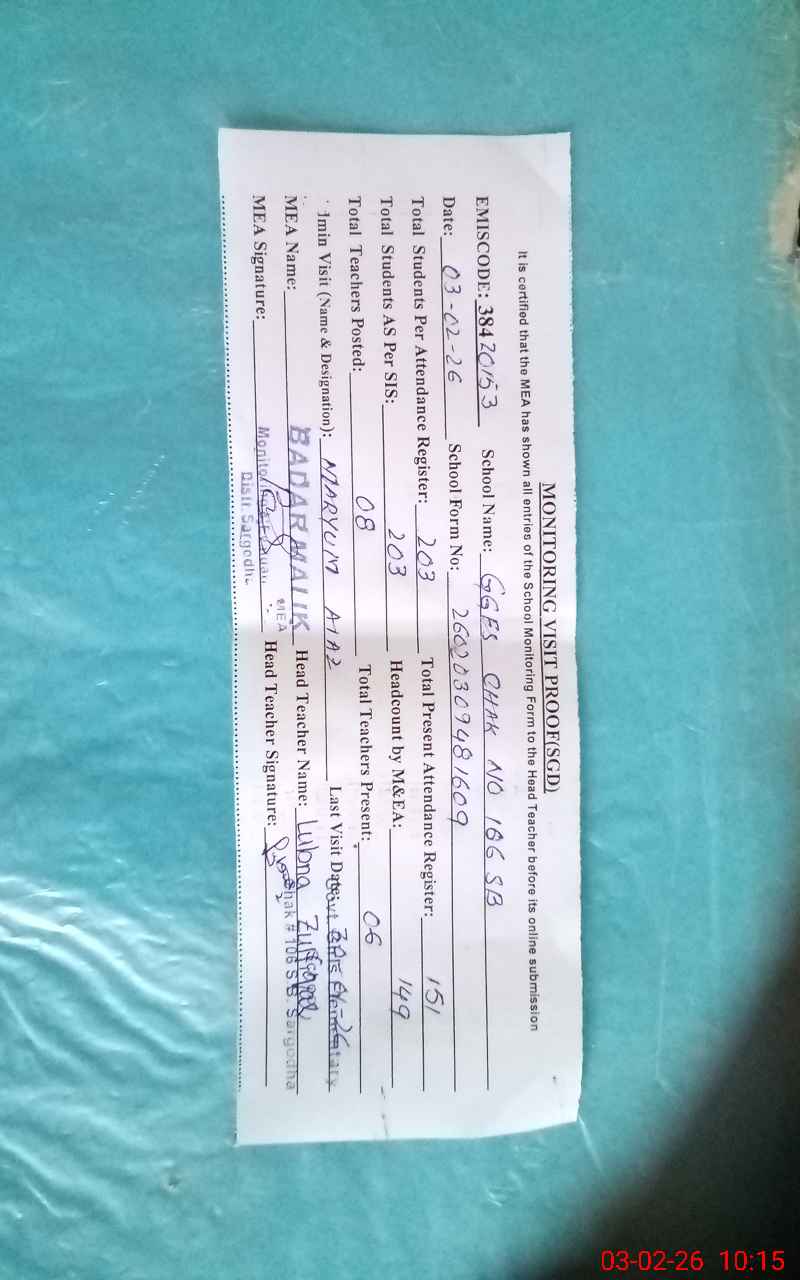 MONITORING VISIT PROOF(SGD)
It is certified that the MEA has shown all entries of the School Monitoring Form to the Head Teacher before its online submission
EMISCODE: 38420153 School Name: GGES CHAK NO 106 SB
Date: 03-02-26 School Form No: 26020309481609
Total Students Per Attendance Register: 203 Total Present Attendance Register: 151
Total Students AS Per SIS: 203 Headcount by M&EA: 149
Total Teachers Posted: 08 Total Teachers Present: 06
1min Visit (Name & Designation): MARYUM AIAZ Last Visit Date:
MEA Name: BADAR MALIK MEA Head Teacher Name: Lubna
MEA Signature: Head Teacher Signature:
Chak # 106 S.B. Sargodha
Distt. Sargodha
03-02-26 10:15